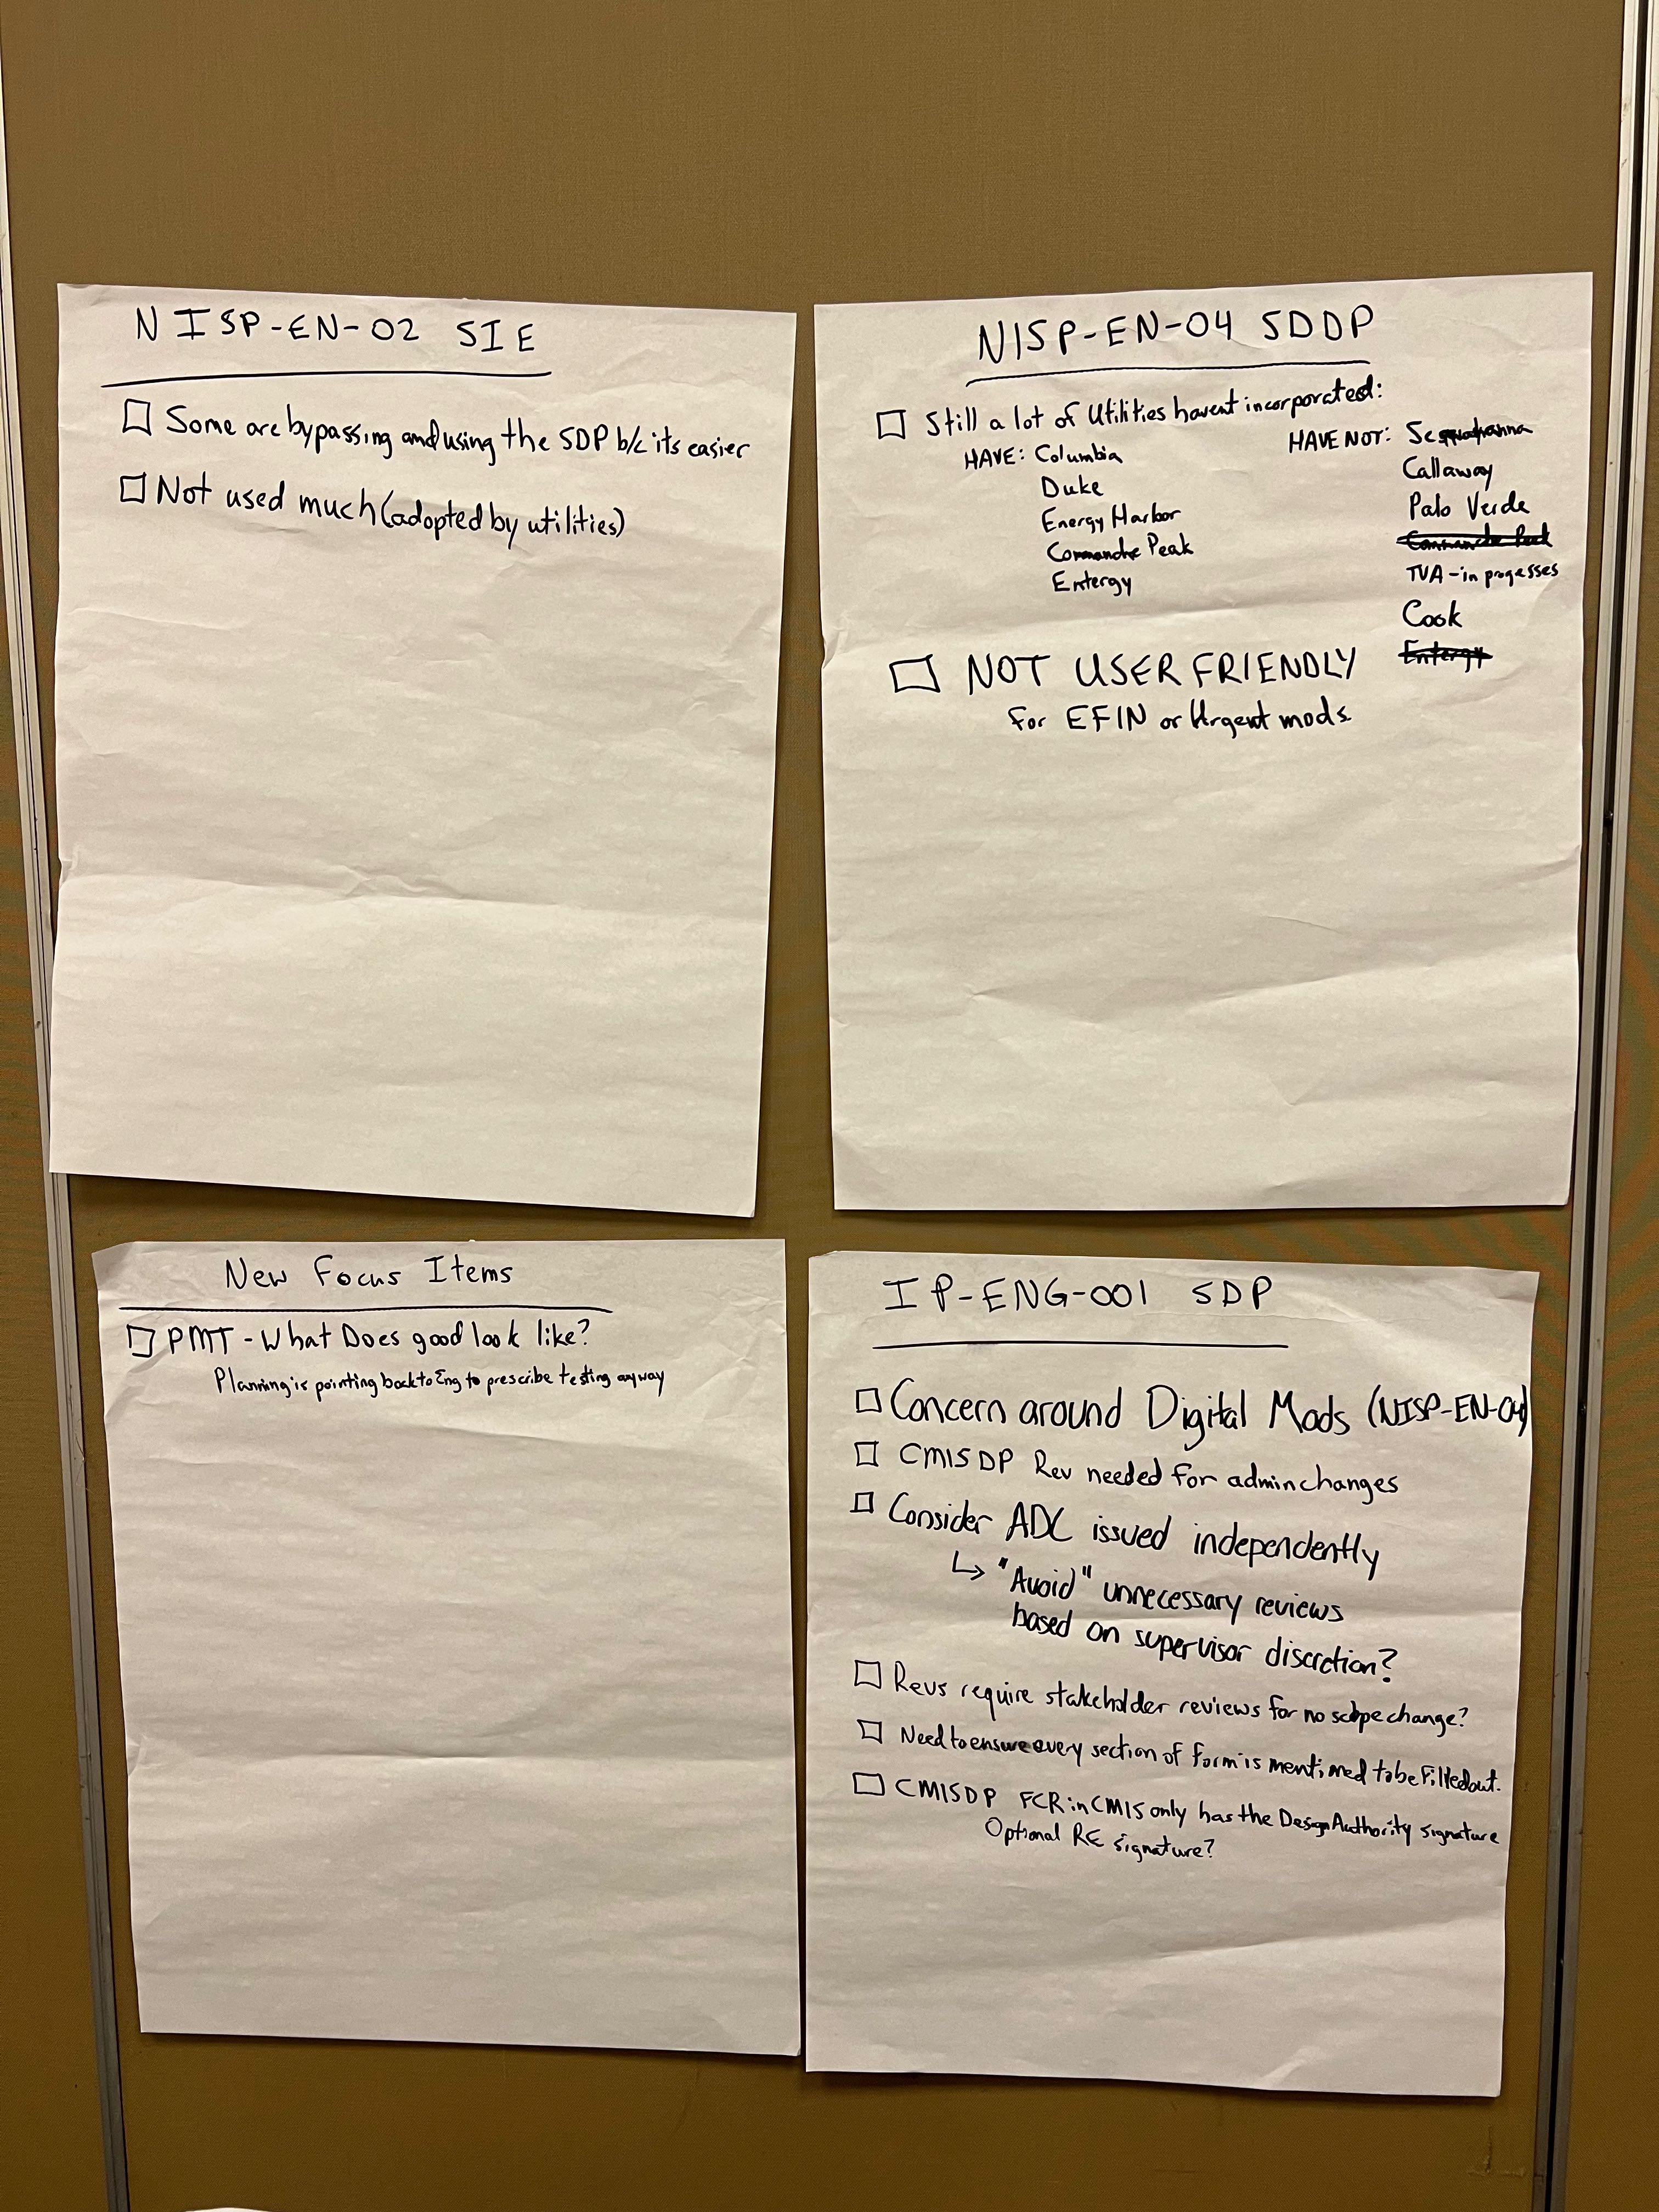 NISP-EN-02 SIE
☐ Some are bypassing and using the SDP b/c its easier
☐ Not used much (adopted by utilities)
NISP-EN-04 SDDP
☐ Still a lot of Utilities havent incorporated:
HAVE: Columbia
Duke
Energy Harbor
Commanche Peak
Entergy
HAVE NOT:
Callaway
Palo Verde
Commanche Peak
TVA - in progesses
Cook
Entergy
☐ NOT USER FRIENDLY
for EFIN or Urgent mods
New Focus Items
☐ PMT - What Does good look like?
Planning is pointing back to Eng to prescribe testing anyway
IP-ENG-001 SDP
☐ Concern around Digital Mods (NISP-EN-04)
☐ CMISDP Rev needed for admin changes
☐ Consider ADC issued independently
↳ "Avoid" unnecessary reviews
based on supervisor discretion?
☐ Revs require stakeholder reviews for no scope change?
☐ Need to ensure every section of form is mentioned to be filled out.
☐ CMISDP FCR in CMIS only has the Design Authority signature
Optional RE signature?